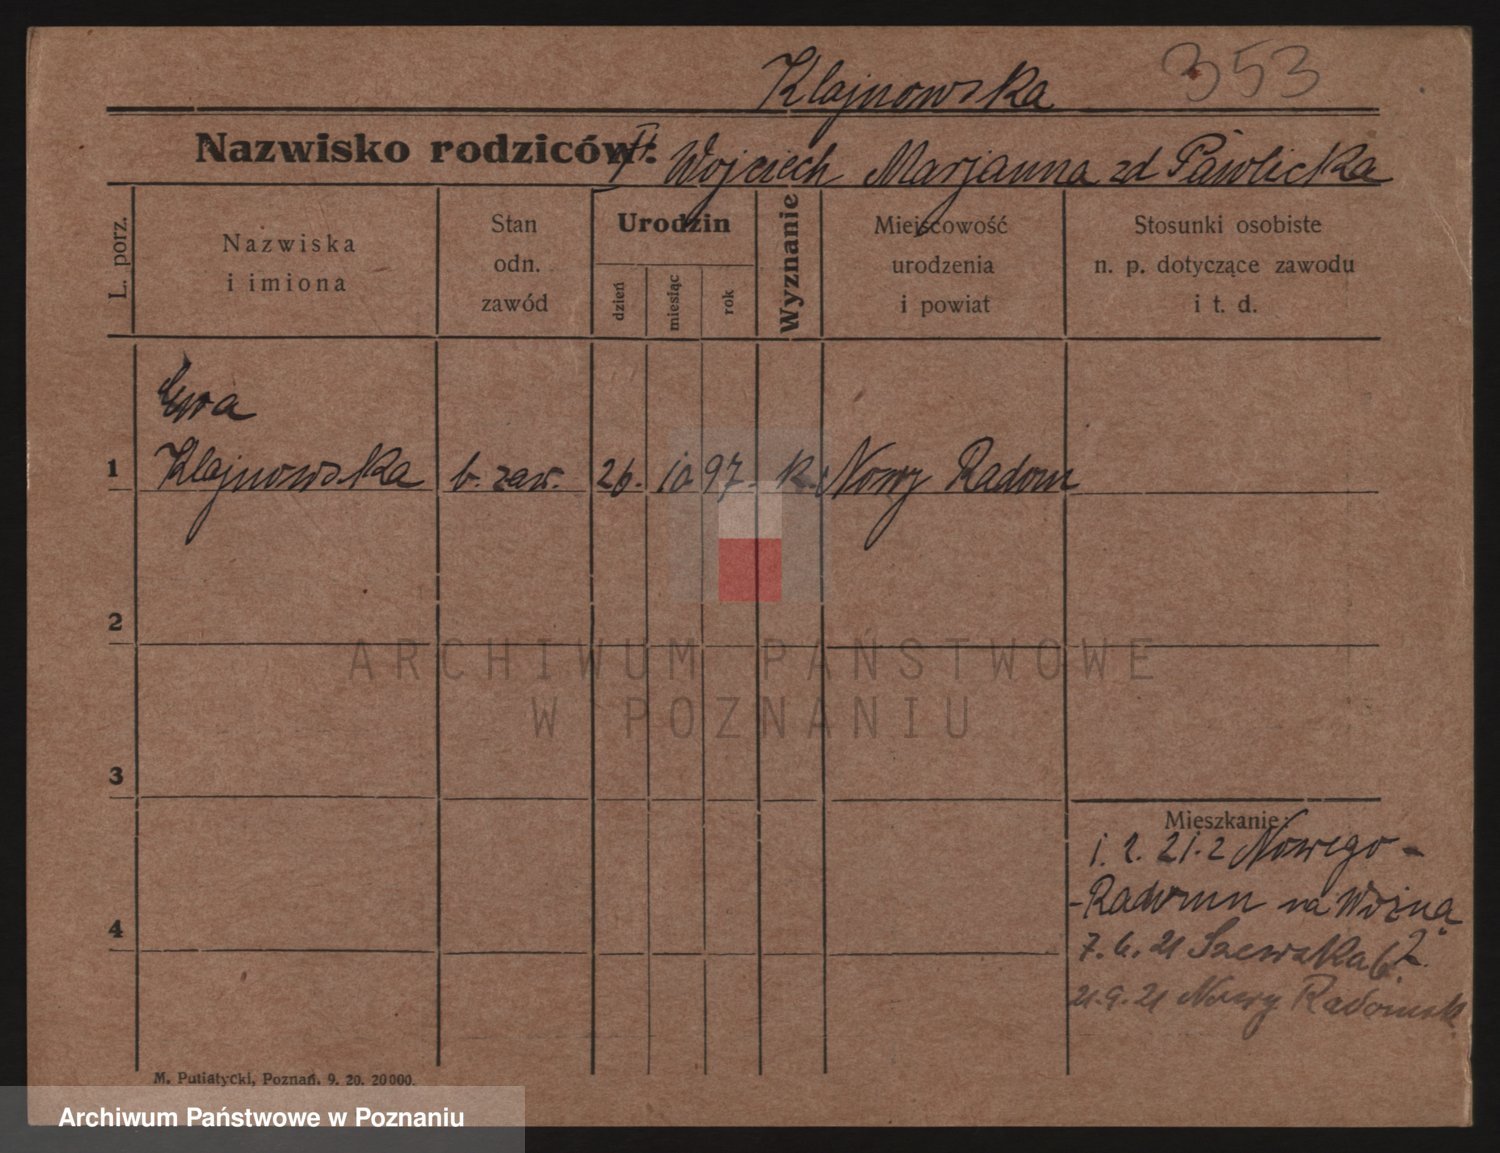 Klajnowska 353
Nazwisko rodziców: Wojciech Marjanna zd Pawlicka
L. porz.
Nazwiska
i imiona
Stan
odn.
zawód
Urodzin
dzień
miesiąc
rok
Wyznanie
Miejscowość
urodzenia
i powiat
Stosunki osobiste
n. p. dotyczące zawodu
i t. d.
Ewa
1 Klajnowska b. zaw. 26. 10. 97. k. Nowy Radom
2
3
4
Mieszkanie:
1. 2. 21. z Nowego-
-Radomu na Woźną
7. 6. 21 Szewska
21. 9. 21 Nowy Radomsk
M. Putiatycki, Poznań. 9. 20. 20000.
ARCHIWUM PAŃSTWOWE
W POZNANIU
Archiwum Państwowe w Poznaniu